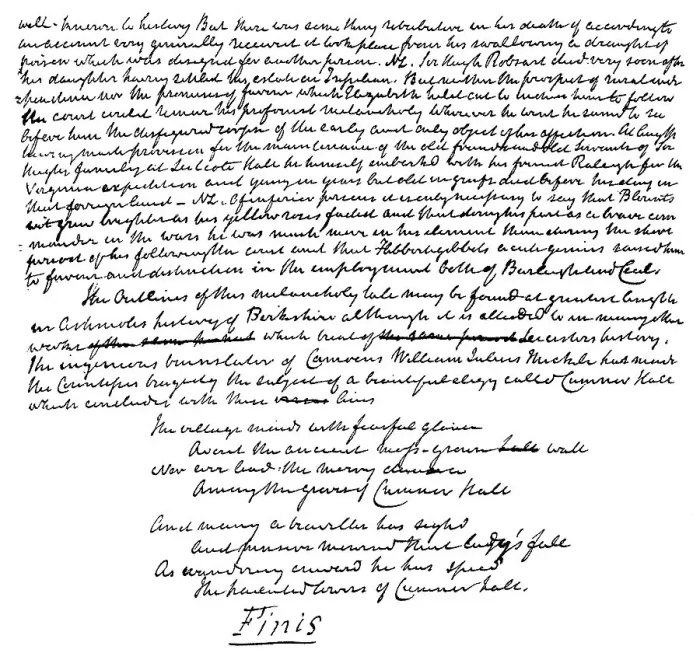 well-known to history But there was something retributive in his death if according to
an account very generally received it took place from his swallowing a draught of
poison which was designed for another person. NL. Sir Hugh Robsart died very soon after
his daughter having settled his estate on Tresilian. But neither the prospect of rural inde
=pendence nor the promises of favour which Elizabeth held out to induce him to follow
the court could remove his profound melancholy Wherever he went he seemed to see
before him the disfigured corpse of the early and only object of his affection At length
having made provision for the maintenance of the old friends and old servants of Sir
Hughs family at Lidcote Hall he himself embarked with his friend Raleigh for the
Virginia expedition and young in years but old in griefs died before his day in
that foreign land – NL. Of inferior persons it is only necessary to say that Blounts
wit grew brighter as his yellow roses faded and that doing his part as a brave com
=mander in the wars he was much more in his element than during the short
period of his following the court and that Flibbertigibbets acute genius raised him
to favour and distinction in the employment both of Burleigh and Cecil.
The outlines of this melancholy tale may be found at greatest length
in Ashmoles history of Berkshire although it is alluded to in many other
works which treat of Leicesters history.
The ingenious translator of Camoens William Julius Mickle has made
the Countess tragedy the subject of a beautiful elegy called Cumnor Hall
which concludes with these lines
The village maids with fearful glance
Avoid the ancient moss-grown wall
Nor ever lead the merry dance
Among the groves of Cumnor Hall
And many a traveller has sighd
And pensive mourned that lady's fall
As wandering onward he has spied
The haunted towers of Cumnor hall.
Finis